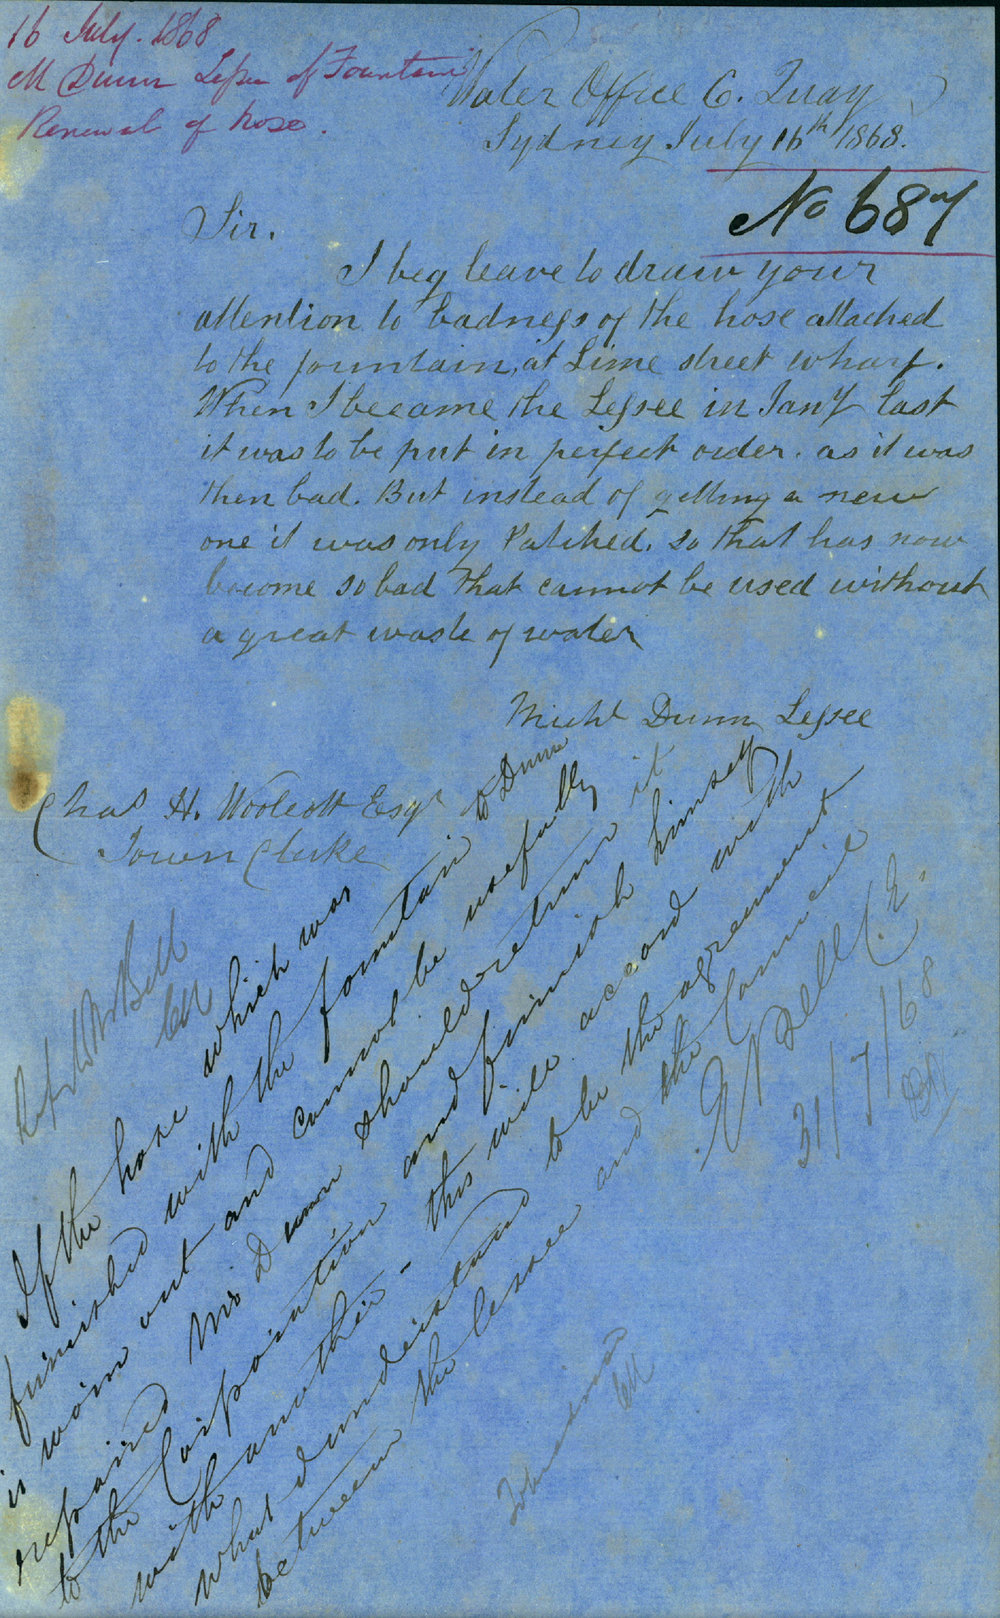 16 July. 1868
M Dunn Lessee of Fountain
Renewal of hose.
Water Office C. Quay
Sydney July 16th 1868.
No 687
Sir.
I beg leave to draw your
attention to badness of the hose attached
to the fountain, at Lime street wharf.
When I became the Lessee in Jany last
it was to be put in perfect order. as it was
then bad. But instead of getting a new
one it was only Patched. so that has now
become so bad that cannot be used without
a great waste of water
Michl Dunn Lessee
Chas H. Woolcott Esqr
Town Clerke
Mr Bell
If the hose which was
furnished with the fountain to Dunn
is worn out and cannot be usefully
repaired Mr Dunn should return it
to the Corporation and furnish himself
with another - this will accord with
what I understand to be the agreement
between the lessee and the Council
E Bell C.E.
31/7/68